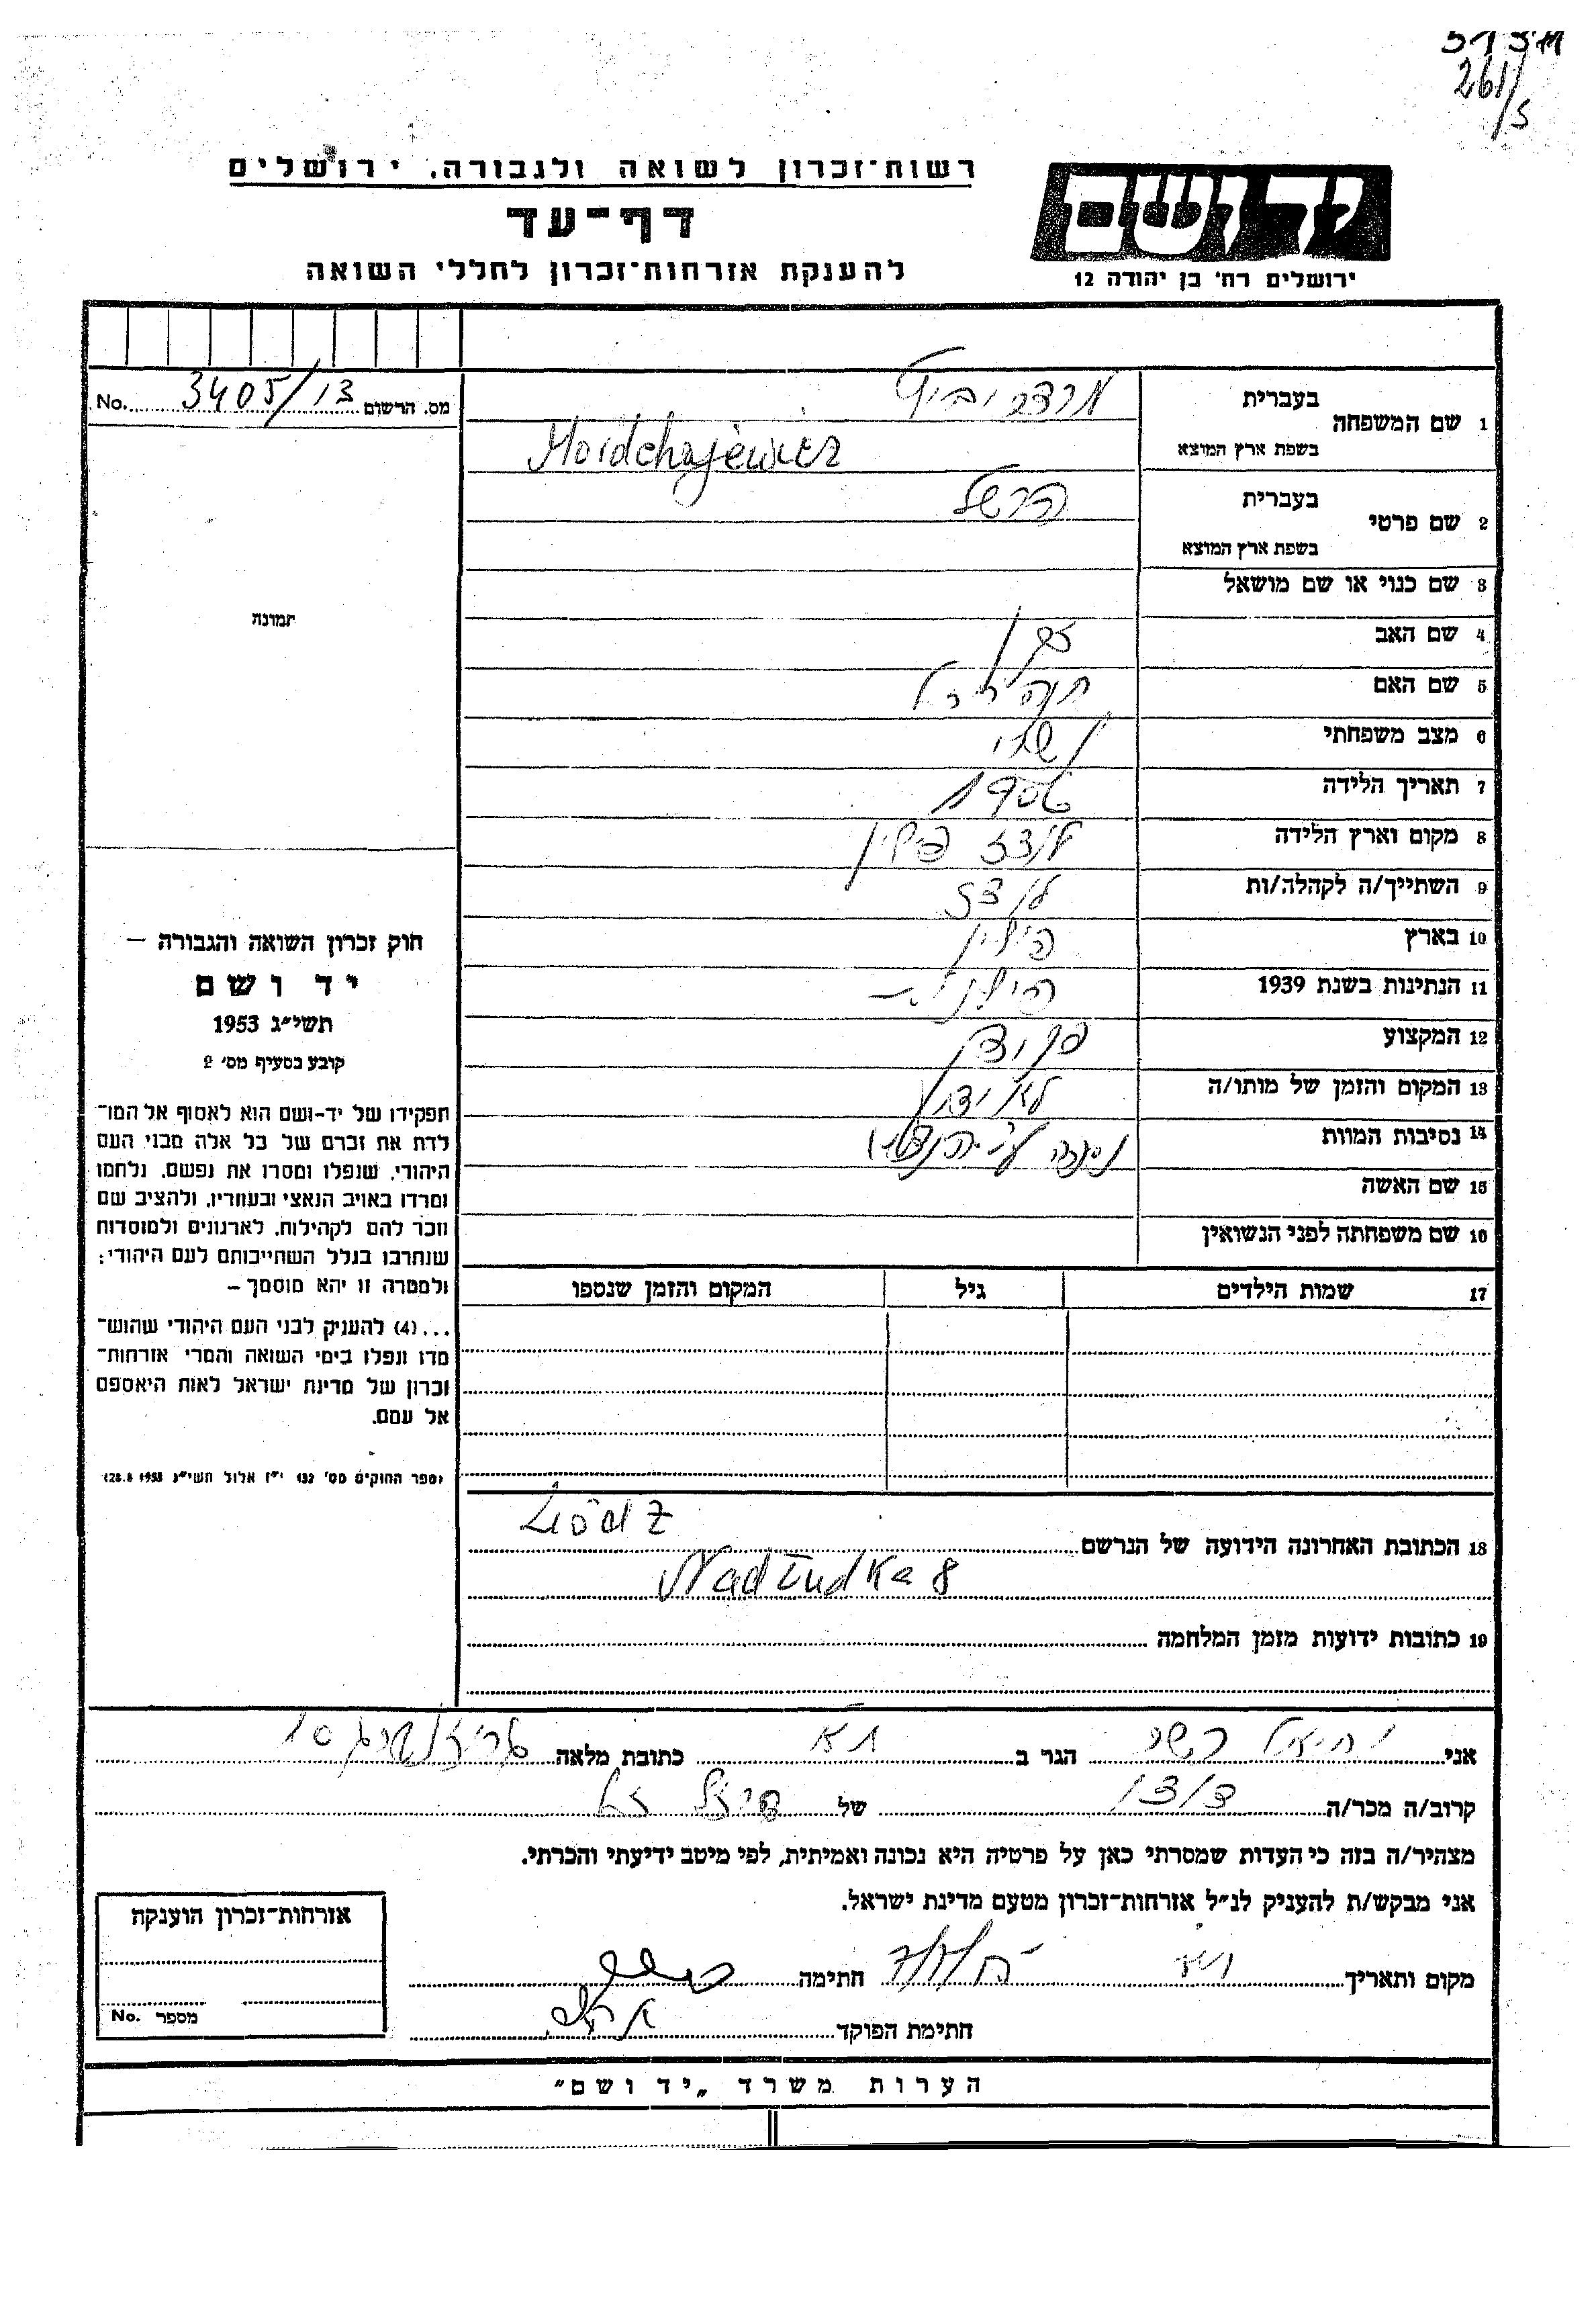 261/5
יד ושם
ירושלים רח' בן יהודה 12
רשות־זכרון לשואה ולגבורה, ירושלים
דף־עד
להענקת אזרחות־זכרון לחללי השואה
מס. הרשום 3405/13 No.
1 שם המשפחה
בעברית
בשפת ארץ המוצא Mordchajewicz
2 שם פרטי
בעברית הרשל
בשפת ארץ המוצא
3 שם כנוי או שם מושאל
4 שם האב
5 שם האם
6 מצב משפחתי נשוי
7 תאריך הלידה
8 מקום וארץ הלידה לודז פולין
9 השתייך/ה לקהלה/ות לודז
10 בארץ פולין
11 הנתינות בשנת 1939 פולנית
12 המקצוע
13 המקום והזמן של מותו/ה לא ידוע
14 נסיבות המוות נספה ע"י הנאצים
15 שם האשה
16 שם משפחתה לפני הנשואין
17 שמות הילדים גיל המקום והזמן שנספו
18 הכתובת האחרונה הידועה של הנרשם Łódź
Nadłudka 8
19 כתובות ידועות מזמן המלחמה
תמונה
חוק זכרון השואה והגבורה –
יד ושם
תשי"ג 1953
קובע בסעיף מס' 2
תפקידו של יד-ושם הוא לאסוף אל המו־
לדת את זכרם של כל אלה מבני העם
היהודי, שנפלו ומסרו את נפשם, נלחמו
ומרדו באויב הנאצי ובעוזריו, ולהציב שם
וזכר להם לקהילות, לארגונים ולמוסדות
שנחרבו בגלל השתייכותם לעם היהודי;
ולמטרה זו יהא מוסמך –
...(4) להעניק לבני העם היהודי שהוש־
מדו ונפלו בימי השואה והמרי אזרחות־
זכרון של מדינת ישראל לאות היאספם
אל עמם.
(ספר החוקים מס' 132 י"ז אלול תשי"ג 28.8.1953)
אני יחיאל הגר ב ת"א כתובת מלאה
קרוב/ה מכר/ה של
מצהיר/ה בזה כי העדות שמסרתי כאן על פרטיה היא נכונה ואמיתית, לפי מיטב ידיעתי והכרתי.
אני מבקש/ת להעניק לנ"ל אזרחות־זכרון מטעם מדינת ישראל.
מקום ותאריך ת"א חתימה
חתימת הפוקד
אזרחות־זכרון הוענקה
מספר No.
הערות משרד „יד ושם"